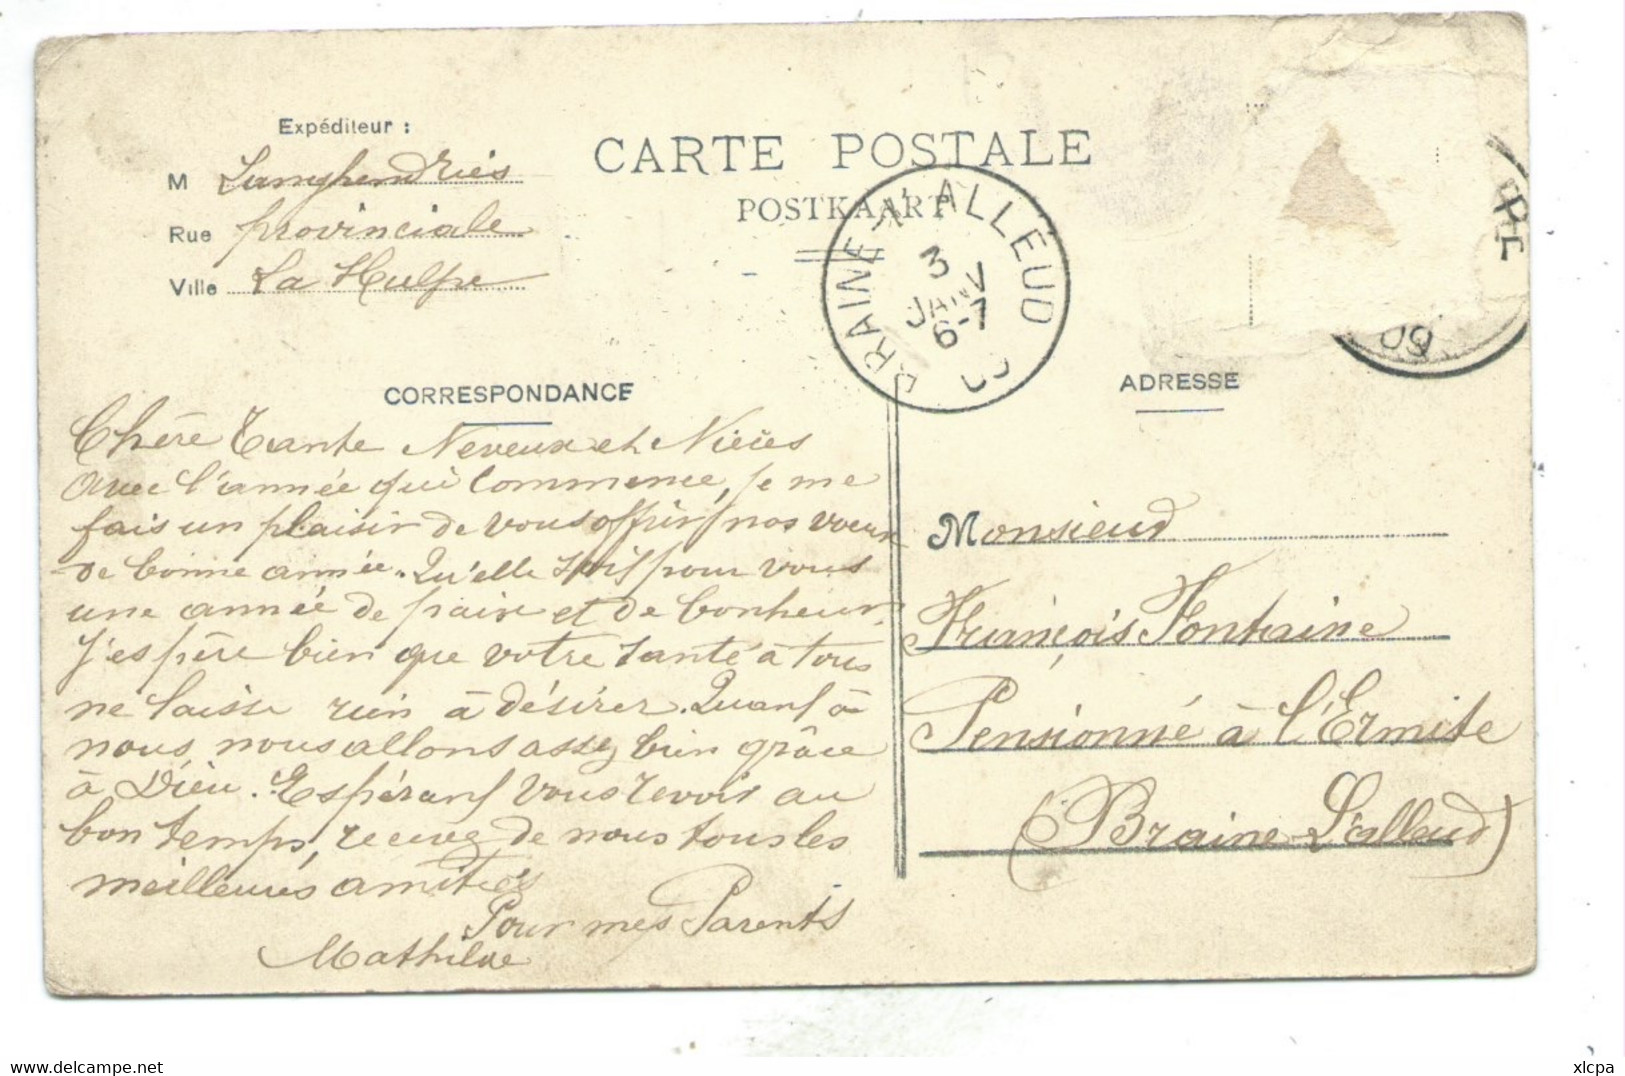 Expéditeur :
M Langhendries
Rue provinciale
Ville La Hulpe
CARTE POSTALE
POSTKAART
BRAINE-L'ALLEUD
3
JANV
6-7
09
CORRESPONDANCE
ADRESSE
Chère Tante Neveux et Nièces
Avec l'année qui commence, je me
fais un plaisir de vous offrir nos voeux
de bonne année. Qu'elle soit pour vous
une année de paix et de bonheur.
J'espère bien que votre santé à tous
ne laisse rien à désirer. Quant à
nous nous allons assez bien grâce
à Dieu. Espérant vous revoir au
bon temps, recevez de nous tous les
meilleures amitiés
Pour mes Parents
Mathilde
Monsieur
François Fontaine
Pensionné à l'Ermite
(Braine-L'alleud)
xlcpa
delcampe.net